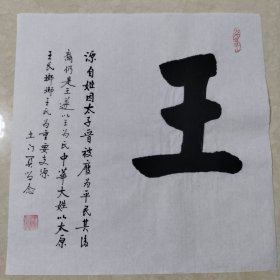 王
源自姓因太子晋被废为平民其后
裔仍是王族以王为氏中华大姓以太原
王氏琅琊王氏为重要支源